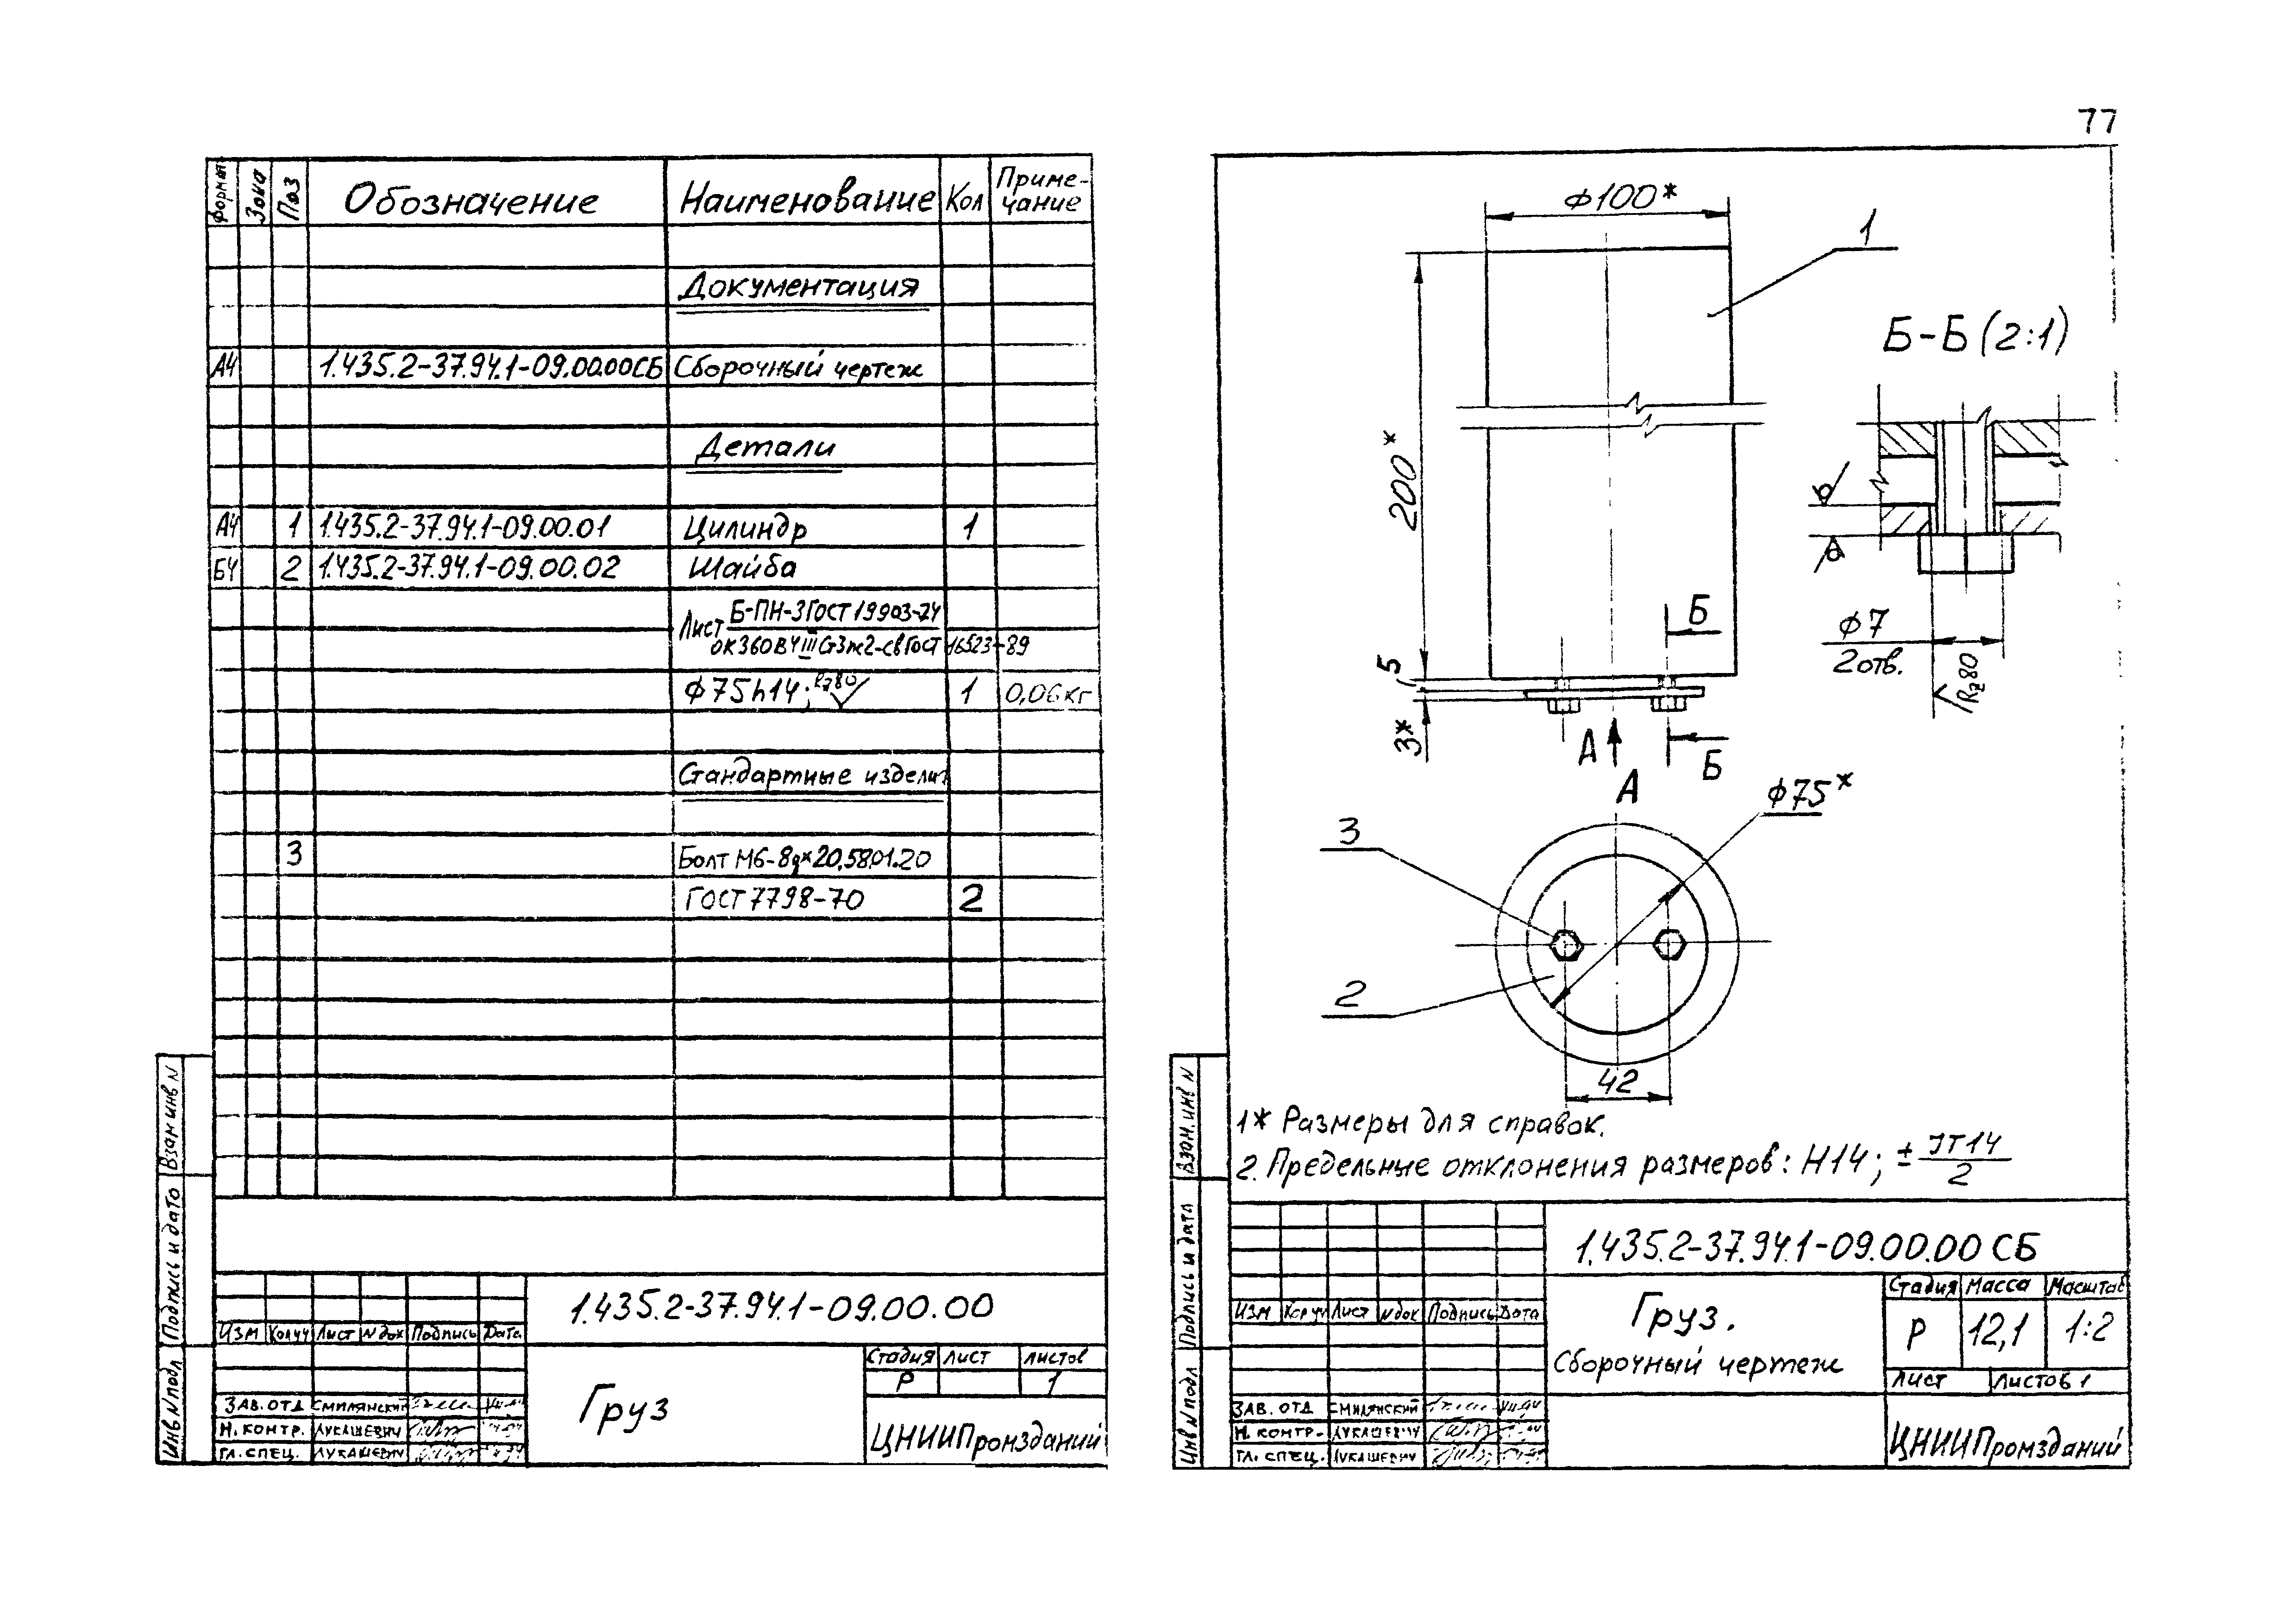 77
Формат Зона Поз Обозначение Наименование Кол Приме-
чание
Документация
А4 1.435.2-37.94.1-09.00.00СБ Сборочный чертеж
Детали
А4 1 1.435.2-37.94.1-09.00.01 Цилиндр 1
Б4 2 1.435.2-37.94.1-09.00.02 Шайба
Лист Б-ПН-3 ГОСТ 19903-74
ОК360В4 III Ст3пс2-св ГОСТ 16523-89
φ75h14; Rz80 1 0,06кг
Стандартные издели
3 Болт М6-8g×20.58.01.20
ГОСТ 7798-70 2
Взам инв N
Подпись и дата
Инв N подл
1.435.2-37.94.1-09.00.00
Изм Кол.уч Лист N док Подпись Дата
Груз
Стадия Лист Листов
Р 1
ЗАВ. ОТД СМИЛЯНСКИЙ
Н. КОНТР. ЛУКАШЕВИЧ
ГЛ. СПЕЦ. ЛУКАШЕВИЧ
ЦНИИПромзданий
φ100*
1
200*
5
3*
Б
Б
А
Б-Б (2:1)
φ7
2 отв.
Rz80
А
φ75*
3
2
42
1* Размеры для справок.
2. Предельные отклонения размеров: Н14; ± IT14
2
Взам. инв N
Подпись и дата
Инв N подл
1.435.2-37.94.1-09.00.00 СБ
Изм Кол.уч Лист N док Подпись Дата
Груз.
Сборочный чертеж
Стадия Масса Масштаб
Р 12,1 1:2
Лист Листов 1
ЗАВ. ОТД СМИЛЯНСКИЙ
Н. КОНТР. ЛУКАШЕВИЧ
ГЛ. СПЕЦ. ЛУКАШЕВИЧ
ЦНИИПромзданий